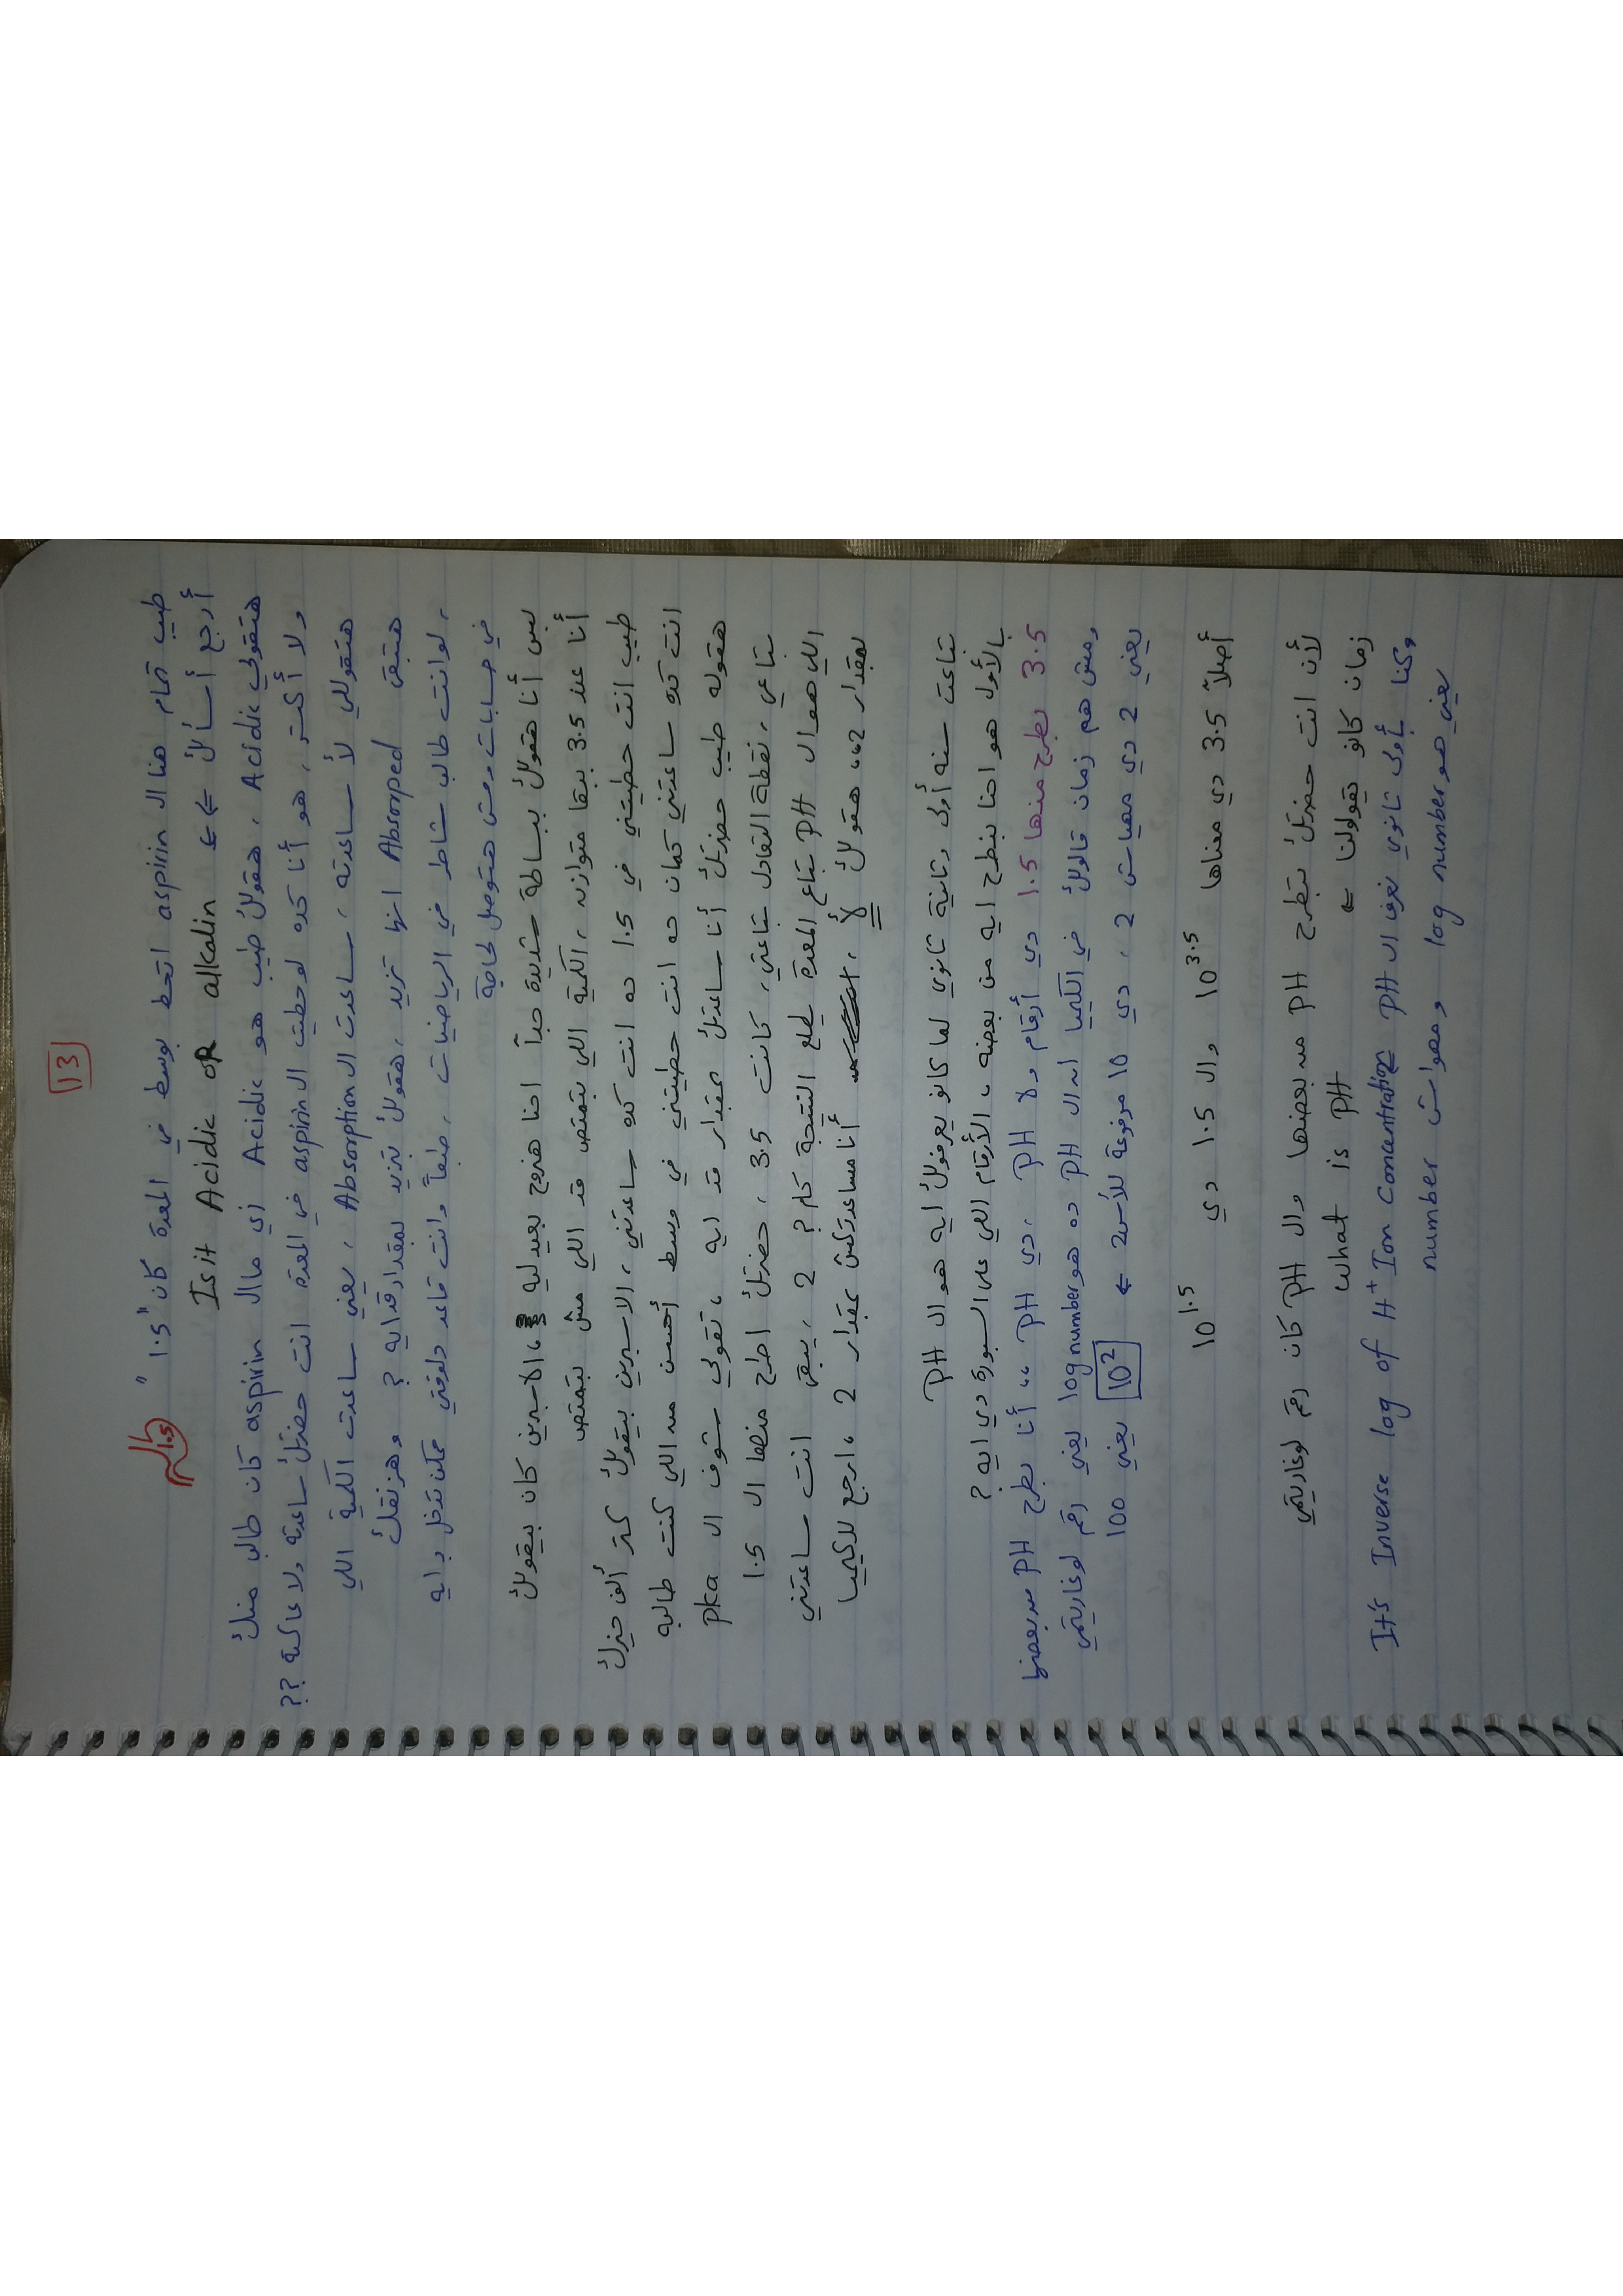 13
طيب تمام هنا ال aspirin اتحط بوسط في المعدة كان "1.5"
1.5
أرجع أسألك ⇐⇐ Is it Acidic OR alkalin
هتقولي Acidic ، هقولك طيب هو Acidic زي ما ال aspirin كان طالب منك
ولا أكتر ، هو أنا كده لو حطيت ال aspirin في المعدة انت حضرتك ساعدته ولا عاكسته ??
هتقوللي لأ ساعدته ، ساعدت ال Absorption ، يعني ساعدت الكمية اللي
هتبقى Absorped انها تزيد ، هقولك بتزيد بمقدار قد ايه ? وهنرنقلك
، لو انت طالب شاطر في الرياضيات ، طبعاً وانت قاعد دلوقتي ممكن تدخل دايه
في حسابات ومش هتوصل لحاجة
بس أنا هقولك ببساطة شديدة جداً احنا هنروح بعيد ليه ، الاسبرين كان بيقولك
أنا عند 3.5 ببقا متوازن ، الكمية اللي بتمتص قد اللي مش بتمتص
طيب انت حطيتني في 1.5 ده انت كده ساعدتني ، الاسبرين بيقولك كتر ألف خيرك
انت كده ساعدتني كمان ده انت حطيتني في وسط أحسن من اللي كنت طالبه
هقوله طيب حضرتك أنا ساعدتك بمقدار قد ايه ، تقولي شوف ال pka
بتاعي ، نقطة التعادل بتاعتي ، كانت 3.5 ، حضرتك اطرح منها ال 1.5
اللي هو ال PH بتاع المعدة يطلع النتيجة كام ? 2 ، يبقى انت ساعدتني
بمقدار 2 ،، هقولك لأ ، أنا مساعدتكش بمقدار 2 ، ارجع للكيميا
بتاعت سنه أولى وتانية ثانوي لما كانو يعرفولك ايه هو ال PH
بالأول هو احنا بنطرح ايه من بعضه ، الأرقام اللي على السبورة دي ايه ?
3.5 بطرح منها 1.5 دي أرقام ولا PH ، دي PH ،، أنا بطرح PH من بعضها
ومش هم زمان قالولك في الكيميا ان ال PH ده هو log number يعني رقم لوغاريتمي
يعني 2 دي مهياش 2 ، دي 10 مرفوعة للأس 2 ← 10² يعني 100
أصلاً 3.5 دي معناها 10^3.5 وال 1.5 دي 10^1.5
لأن انت حضرتك بتطرح PH من بعضها وال PH كان رقم لوغاريتمي
زمان كانو بيقولولنا ← What is PH
وكنا بأولى ثانوي نعرف ال PH It's Inverse log of H⁺ Ion Concentration
يعني هو log number ومهواش number